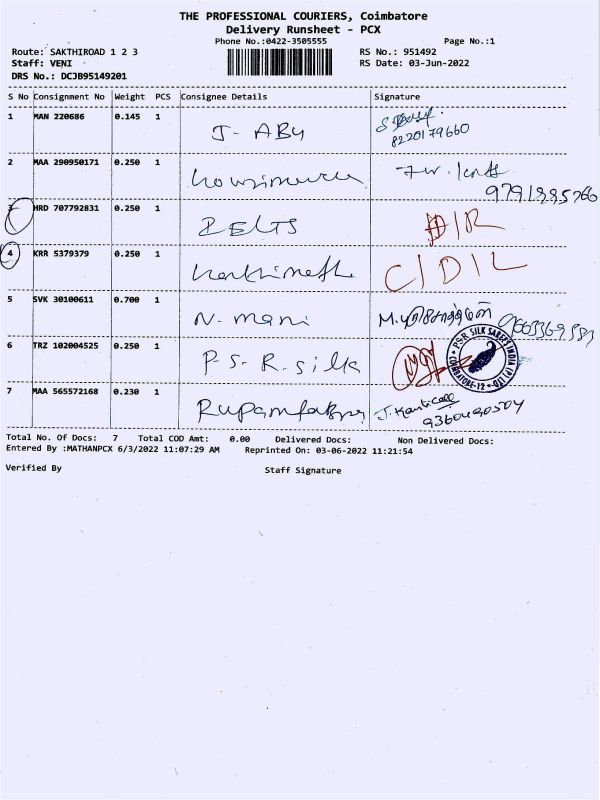 THE PROFESSIONAL COURIERS, Coimbatore
Delivery Runsheet - PCX
Phone No.:0422-3505555 Page No.:1
Route: SAKTHIROAD 1 2 3 RS No.: 951492
Staff: VENI RS Date: 03-Jun-2022
DRS No.: DCJB95149201
S No Consignment No Weight PCS Consignee Details Signature
1 MAN 220686 0.145 1
J- ABY
8220179660
2 MAA 290950171 0.250 1
9791885766
3 HRD 707792831 0.250 1
IELTS D/R
4 KRR 5379379 0.250 1
C/D/L
5 SVK 30100611 0.700 1
N. mani
6 TRZ 102004525 0.250 1
P.S.R. silk PSR SILK SAREES INDIA (P) LTD COIMBATORE-12
7 MAA 565572168 0.230 1
9360490504
Total No. Of Docs: 7 Total COD Amt: 0.00 Delivered Docs: Non Delivered Docs:
Entered By :MATHANPCX 6/3/2022 11:07:29 AM Reprinted On: 03-06-2022 11:21:54
Verified By Staff Signature